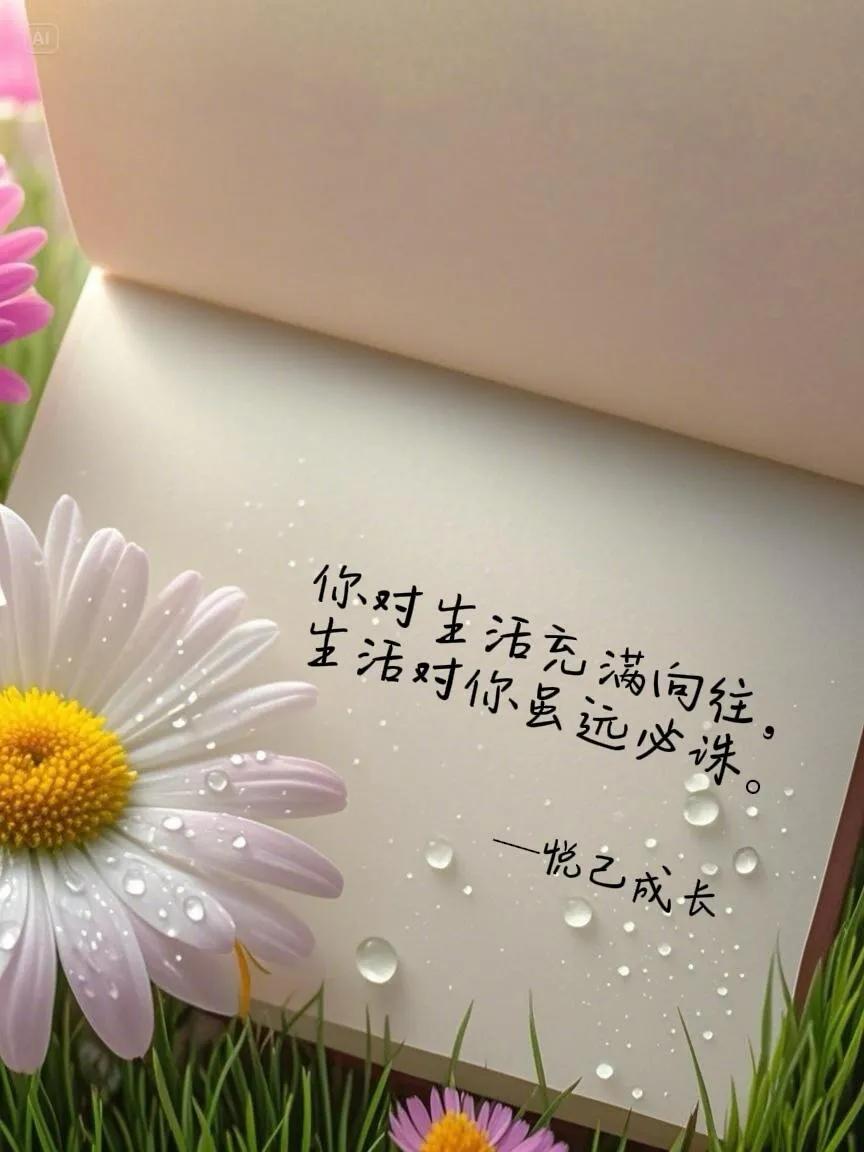 AI
你对生活充满向往，
生活对你虽远必诛。
——悦己成长